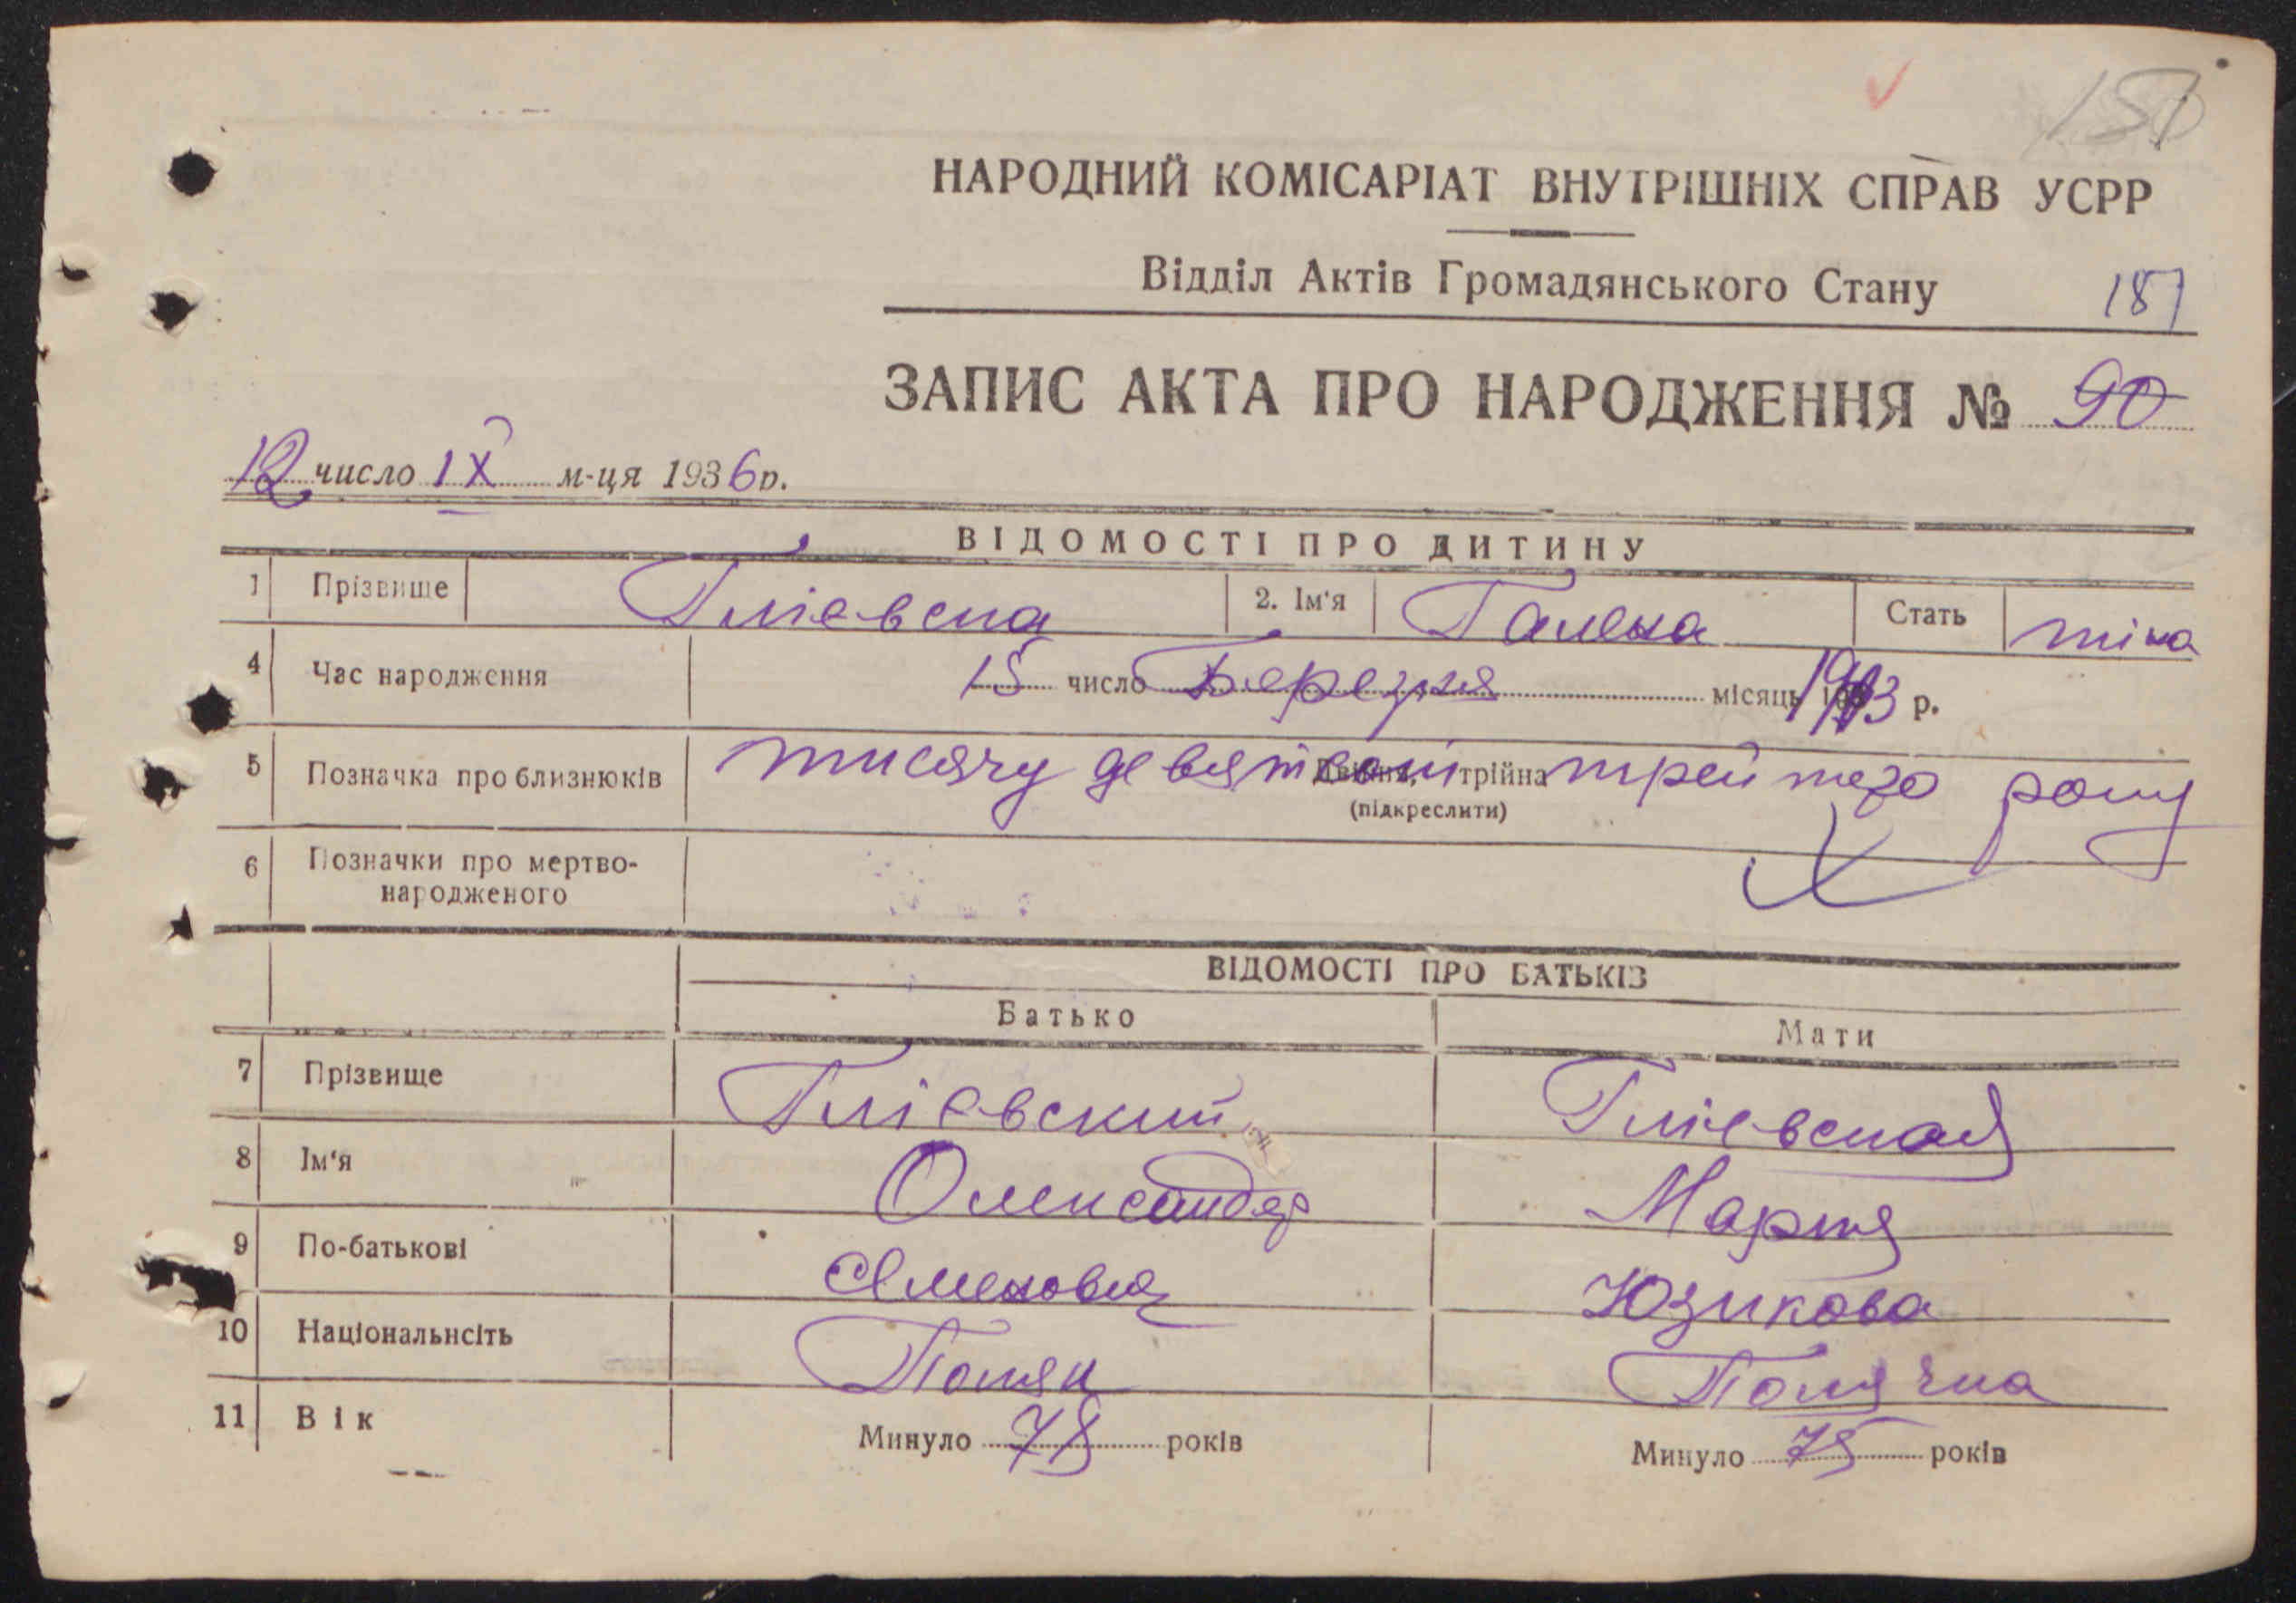 151
НАРОДНИЙ КОМІСАРІАТ ВНУТРІШНІХ СПРАВ УСРР
Відділ Актів Громадянського Стану 187
ЗАПИС АКТА ПРО НАРОДЖЕННЯ № 90
12 число IX м-ця 1936 р.
ВІДОМОСТІ ПРО ДИТИНУ
1 Прізвище Гліевска 2. Ім'я Галена Стать жіна
4 Час народження 15 число Березня місяць 1903 р.
5 Позначка про близнюків тисячу девятсот трейтего року
Двійня, трійна
(підкреслити)
6 Позначки про мертво-
народженого
ВІДОМОСТІ ПРО БАТЬКІВ
Батько Мати
7 Прізвище Гліевский Гліевская
8 Ім'я Олександер Марія
9 По-батькові Юзикова
10 Національнсіть Поляк Полячка
11 Вік Минуло 78 років Минуло 75 років